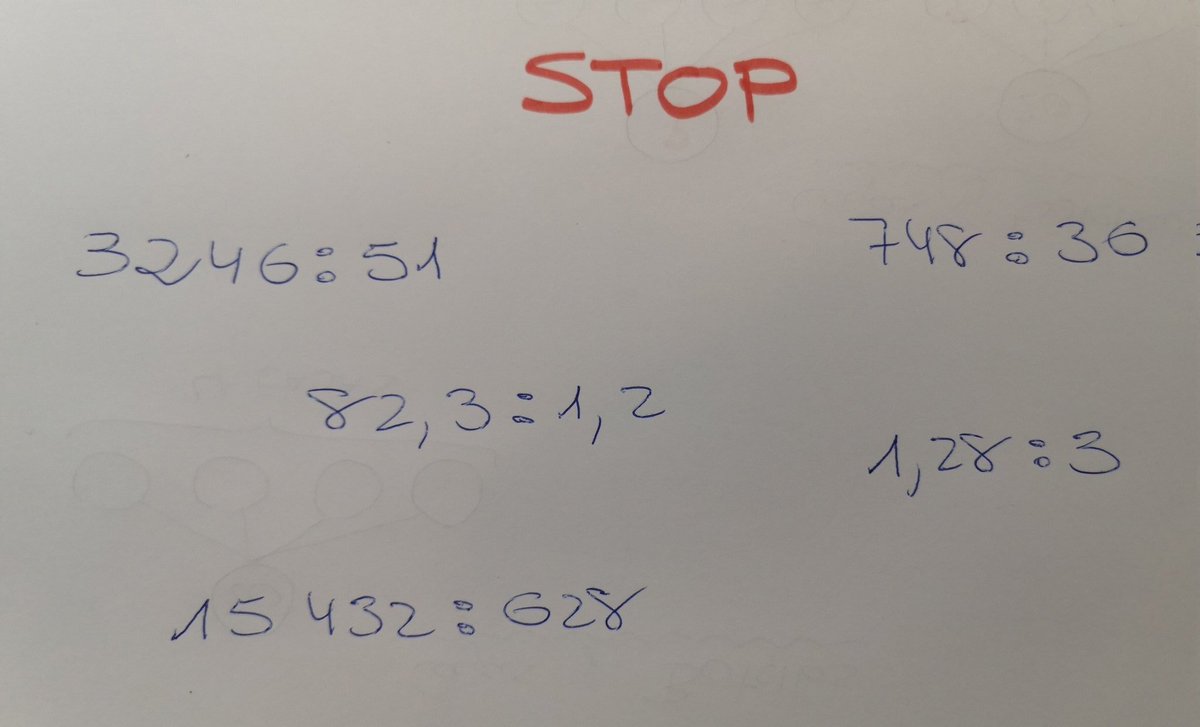 STOP
3246:51
748:36
82,3:1,2
1,28:3
15 432:628